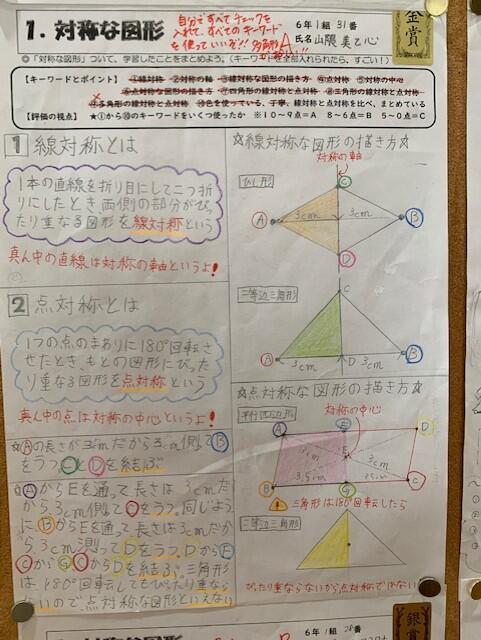 1. 対称な図形
自分ですべてチェックを
入れて、すべてのキーワード
を使っていいぞ!! 多角形A
6年1組 31番
氏名 山隈 美乙心
金賞
◎「対称な図形」ついて、学習したことをまとめよう。(キーワードを全部入れられたら、すごい!)
【キーワードとポイント】 ①線対称 ②対称の軸 ③線対称な図形の描き方 ④点対称 ⑤対称の中心
⑥点対称な図形の描き方 ⑦四角形の線対称と点対称 ⑧三角形の線対称と点対称
⑨多角形の線対称と点対称 ⑩色を使っている、丁寧、線対称と点対称を比べ、まとめている
【評価の視点】 ★①から⑩のキーワードをいくつ使ったか ※10~9点=A 8~6点=B 5~0点=C
1 線対称とは
1本の直線を折り目にして二つ折
りにしたとき両側の部分がぴっ
たり重なる図形を線対称という
真ん中の直線は対称の軸というよ!
2 点対称とは
1つの点のまわりに180°回転さ
せたとき、もとの図形にぴった
り重なる図形を点対称という
真ん中の点は対称の中心というよ!
☆Aの長さが3cmだから3cm側てB
をうつCとDを結ぶ
☆AからEを通って長さは3cmだ
から3cm測てCをうつ。同じよう
にBからEを通って長さは3cmだか
ら3cm測ってDをうつ。DからE
は180°回転してもぴったり重なら
ないので点対称な図形といえない
☆線対称な図形の描き方☆
対称の軸
ひし形
C
A 3cm 3cm B
D
二等辺三角形
C
A 3cm D 3cm B
☆点対称な図形の描き方☆
平行四辺形
対称の中心
A E D
E
3cm
3.5cm
B G C
三角形は180°回転したら
二等辺三角形
ぴったり重ならないから点対称ではない
6年1組 28番
銀賞